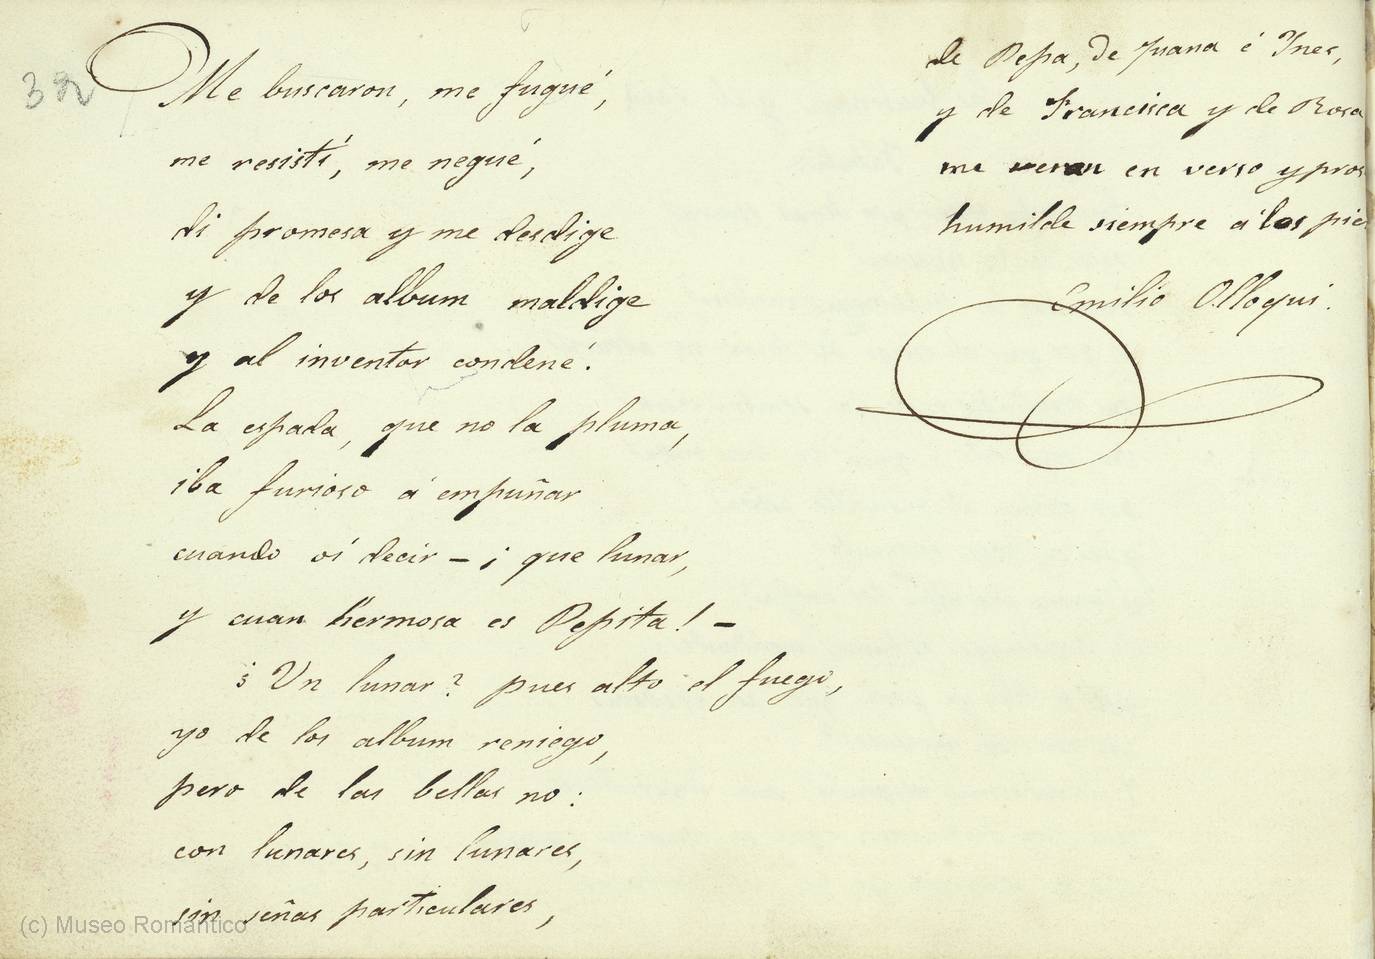 32
Me buscaron, me fugué,
me resistí, me negué,
di promesa y me desdige
y de los album maldige
y al inventor condené.
La espada, que no la pluma,
iba furioso á empuñar
cuando oí decir – ¡ que lunar,
y cuan hermosa es Pepita! –
¿ Un lunar? pues alto el fuego,
yo de los album reniego,
pero de las bellas no:
con lunares, sin lunares,
sin señas particulares,
de Pepa, de Juana é Ines,
y de Francisca y de Rosa
me veran en verso y pros
humilde siempre á los pie
Emilio Olloqui.
(c) Museo Romántico